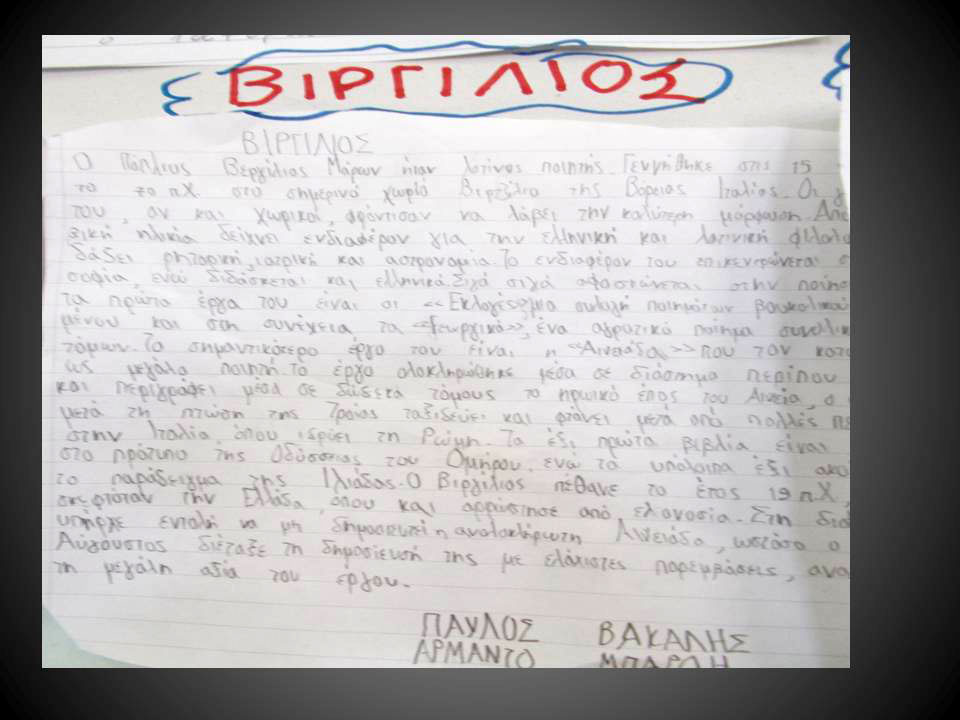 ΒΙΡΓΙΛΙΟΣ
ΒΙΡΓΙΛΙΟΣ
Ο Πόπλιος Βεργίλιος Μάρων ήταν λατίνος ποιητής. Γεννήθηκε στις 15
το 70 π.Χ. στο σημερινό χωριό Βιρτζίλιο της Βόρειας Ιταλίας. Οι
του, αν και χωρικοί, φρόντισαν να λάβει την καλύτερη μόρφωση. Από
ηλικία δείχνει ενδιαφέρον για την ελληνική και λατινική
ρητορική, ιατρική και αστρονομία. Το ενδιαφέρον του επικεντρώνεται
σοφία, ενώ διδάσκεται και ελληνικά. Σιγά σιγά αφοσιώνεται στην
τα πρώτα έργα του είναι οι συλλογή ποιημάτων
μένου και στη συνέχεια τα <<Γεωργικά>>, ένα αγροτικό ποίημα
τόμων. Το σημαντικότερο έργο του είναι η <<Αινειάδα>> που τον
ως μεγάλο ποιητή. Το έργο ολοκληρώθηκε μέσα σε διάστημα περίπου
και περιγράφει μέσα σε δώδεκα τόμους το ηρωικό έπος του Αινεία, ο
μετά τη πτώση της Τροίας ταξιδεύει και φτάνει μετά από πολλές
στην Ιταλία, όπου ιδρύει τη Ρώμη. Τα έξι πρώτα βιβλία είναι
στο πρότυπο της Οδύσσειας του Ομήρου, ενώ τα υπόλοιπα έξι
το παράδειγμα της Ιλιάδας. Ο Βιργίλιος πέθανε το έτος 19 π.Χ,
την Ελλάδα, όπου και αρρώστησε από ελονοσία. Στη
υπήρχε εντολή να μη δημοσιευτεί η Αινειάδα, ωστόσο ο
Αύγουστος διέταξε τη δημοσίευσή της με ελάχιστες παρεμβάσεις,
τη μεγάλη αξία του έργου.
ΠΑΥΛΟΣ ΒΑΚΑΛΗΣ
ΑΡΜΑΝΤΟ